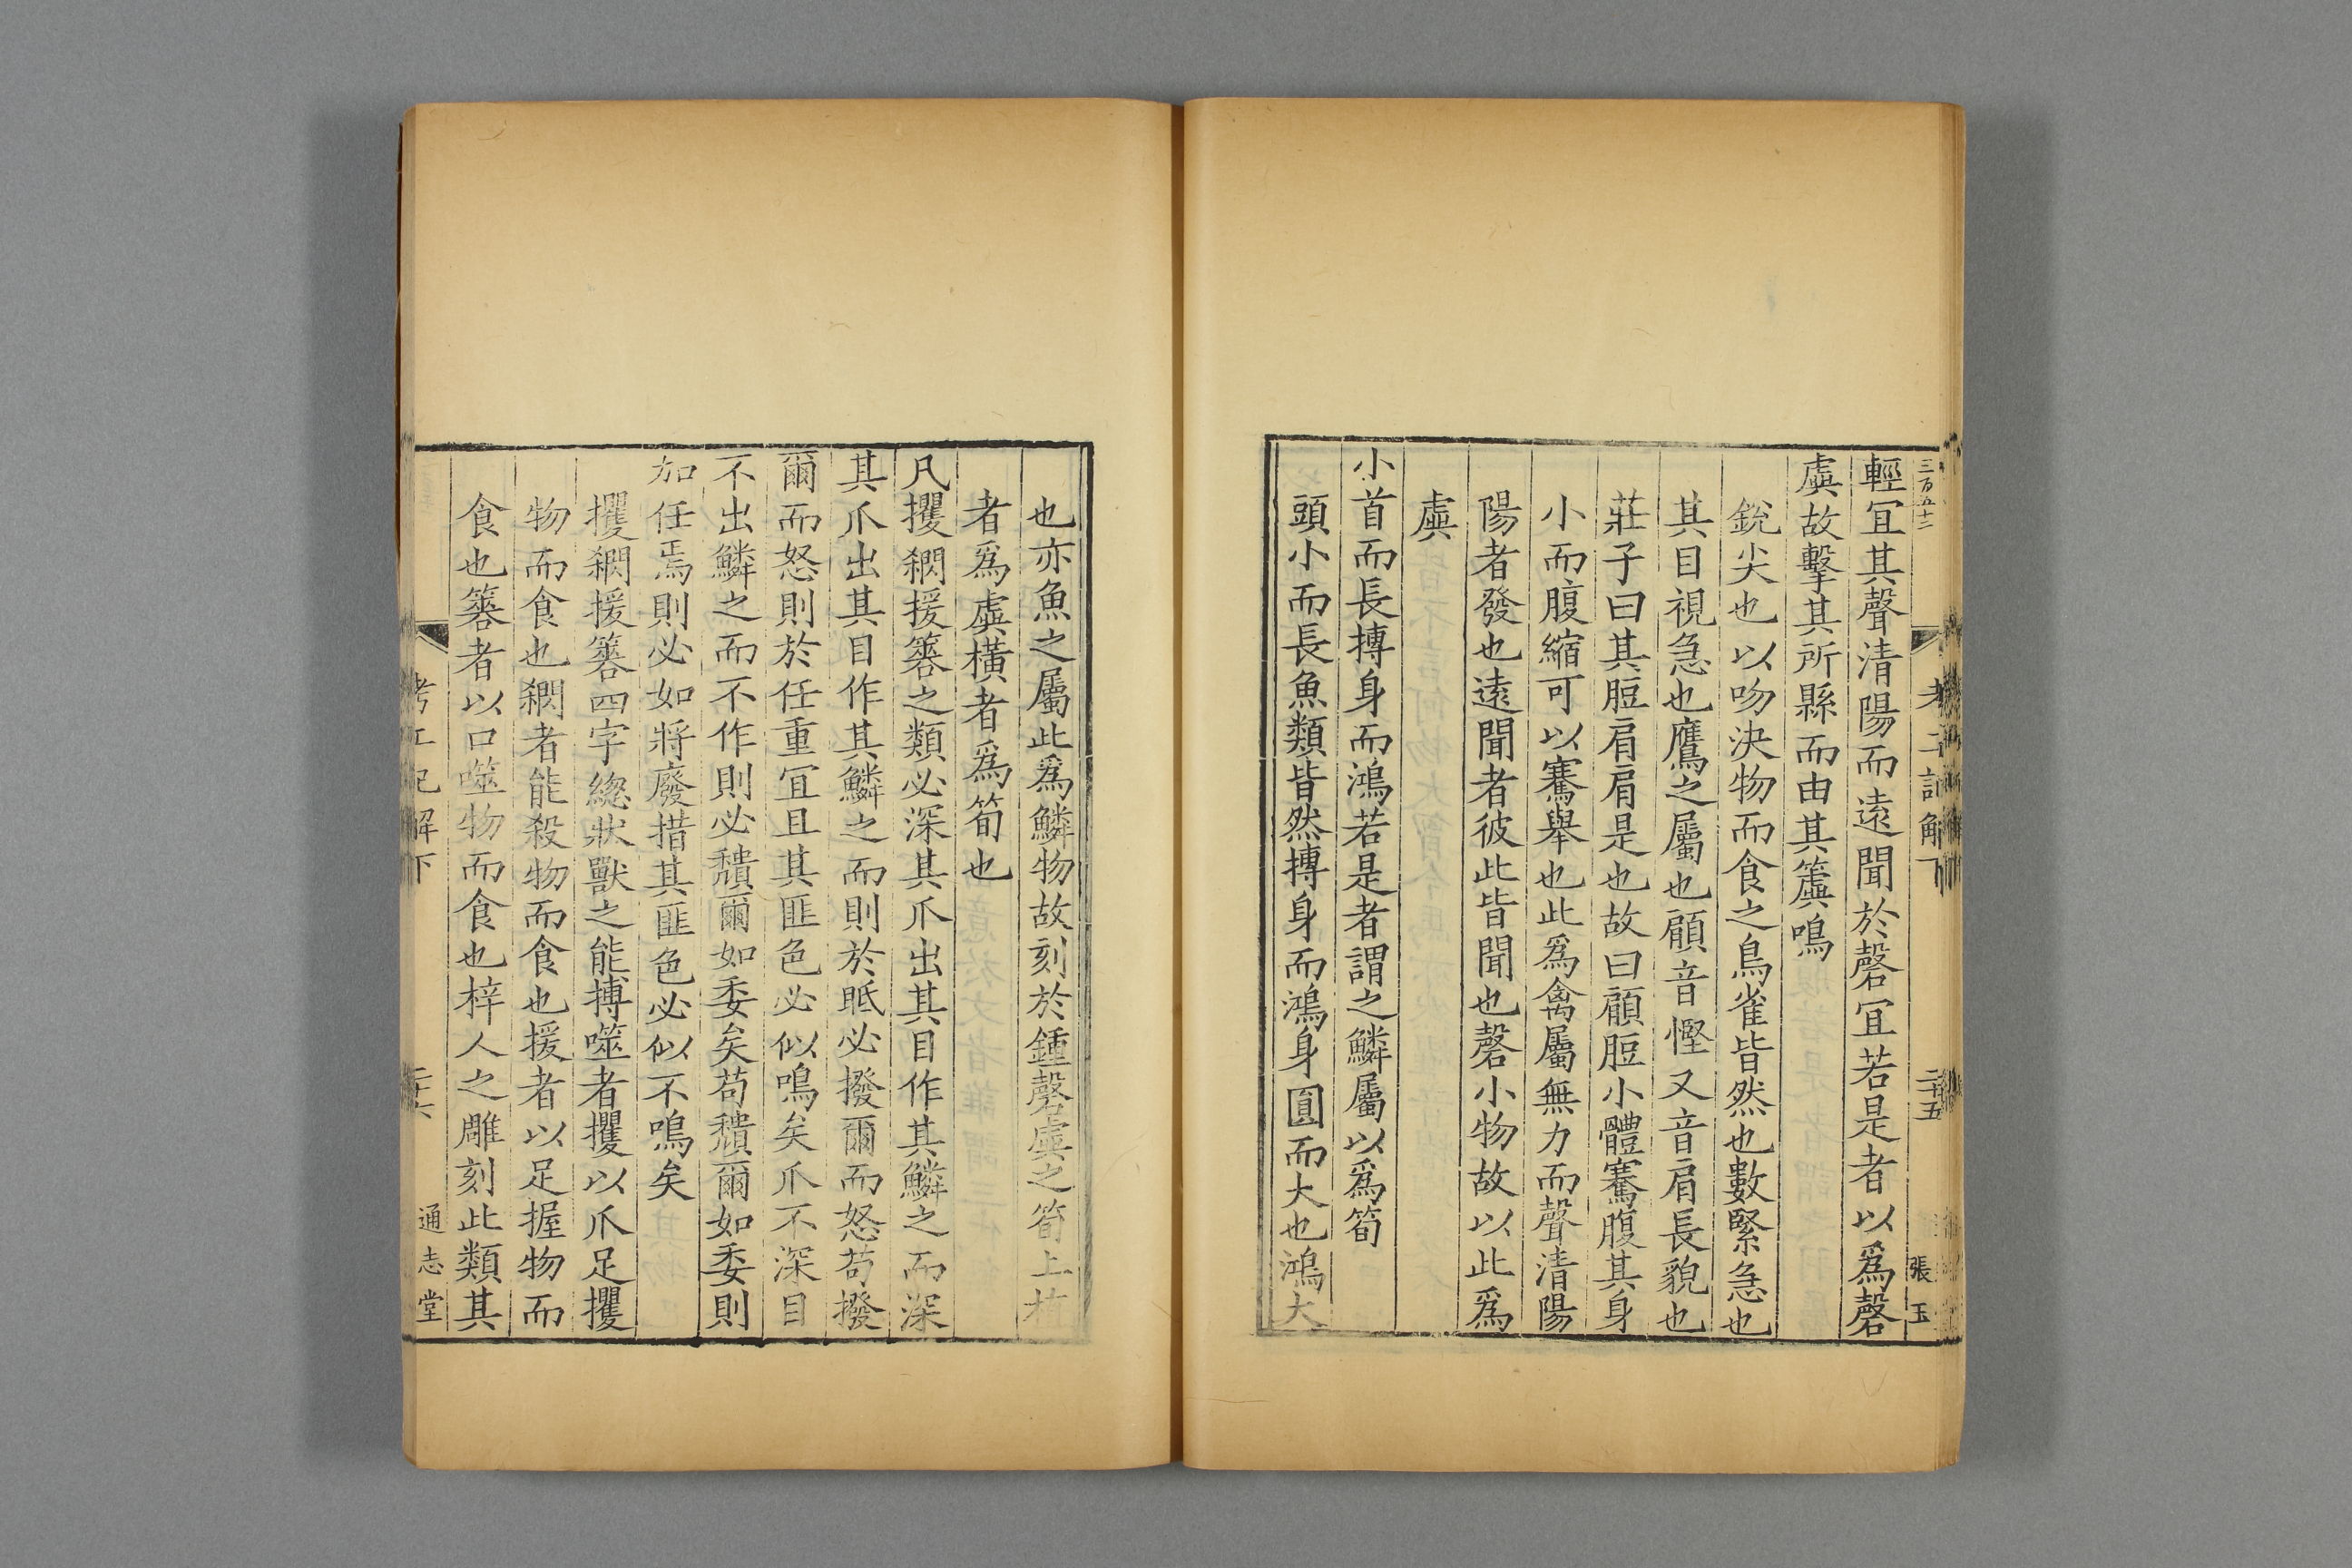 三百五十二
考工記解下
二十五
張玉
輕宜其聲清陽而遠聞於磬宜若是者以爲磬
虡故擊其所縣而由其簴鳴
銳尖也以吻決物而食之鳥雀皆然也數緊急也
其目視急也鷹之屬也顧音慳又音肩長貌也
莊子曰其脰肩肩是也故曰顧脰小體騫腹其身
小而腹縮可以騫舉也此爲禽屬無力而聲清陽
陽者發也遠聞者彼此皆聞也磬小物故以此爲
虡
小首而長摶身而鴻若是者謂之鱗屬以爲筍
頭小而長魚類皆然摶身而鴻身圓而大也鴻大
也亦魚之屬此爲鱗物故刻於鍾磬虡之筍上植
者爲虡橫者爲筍也
凡攫閷援簭之類必深其爪出其目作其鱗之而深
其爪出其目作其鱗之而則於眡必撥爾而怒苟撥
爾而怒則於任重宜且其匪色必似鳴矣爪不深目
不出鱗之而不作則必穨爾如委矣苟穨爾如委則
加任焉則必如將廢措其匪色必似不鳴矣
攫閷援簭四字緫狀獸之能搏噬者攫以爪足攫
物而食也閷者能殺物而食也援者以足握物而
食也簭者以口噬物而食也梓人之雕刻此類其
考工記解下
二十六
通志堂